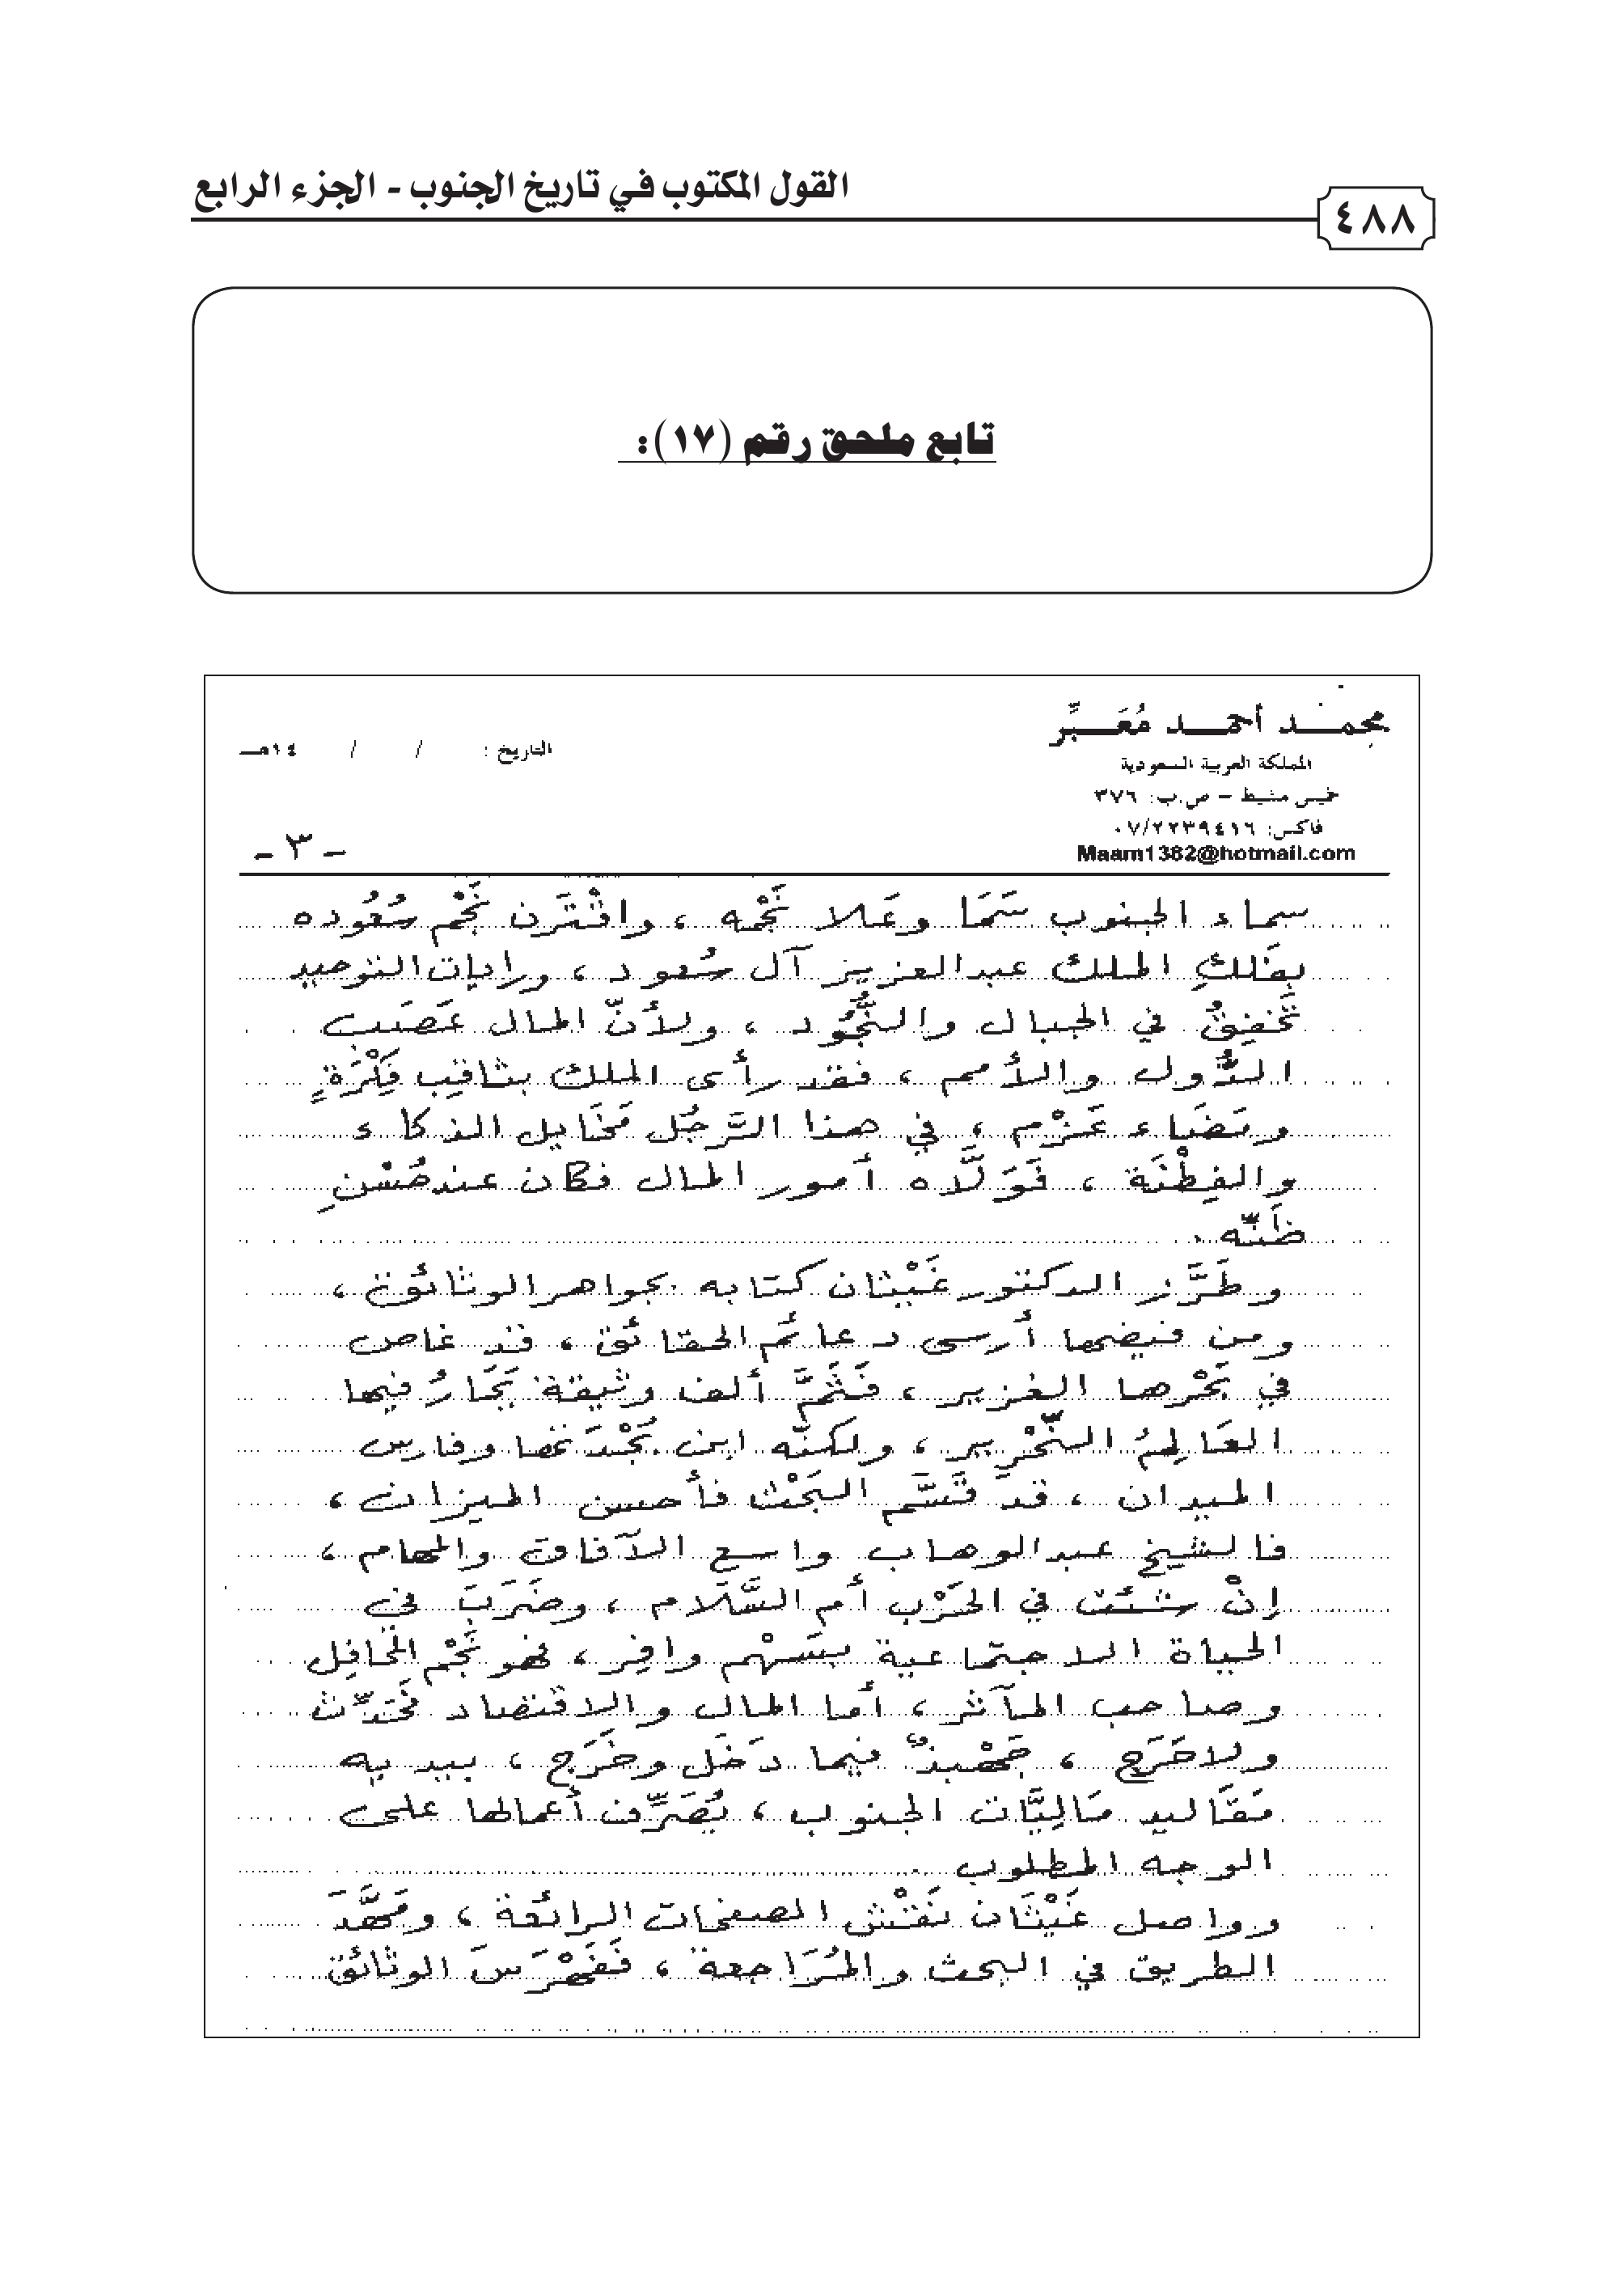 القول المكتوب في تاريخ الجنوب - الجزء الرابع
٤٨٨
تابع ملحق رقم (١٧):
محمد أحمد مُعَبِّر
المملكة العربية السعودية
خميس مشيط – ص.ب: ٣٧٦
فاكس: ٠٧/٢٢٣٩٤١٦
Maam1382@hotmail.com
التاريخ :   /   /   ١٤هـ
- ٣ -
سماء الجنوب سَمَا وعَلا نَجْمه ، واقْتَرن نَجْم سُعُوده
بِفَلكِ الملك عبدالعزيز آل سُعود ، ورايات التوحيد
تَخفِقُ في الجبال والنُّجُود ، ولأنّ المال عَصَب
الدُّول والأمم ، فقد رأى الملك بثاقِب فِكْرَةٍ
ومَضَاء عَزْم ، في هذا الرَّجُل مَخَايل الذكاء
والفِطْنَة ، فَوَلَّاه أمور المال فكان عند حُسْنِ
ظَنّه .
وطَرَّز الدكتور غَيْثان كتابه بجواهر الوثائق ،
ومن فيضها أرسى دعائم الحقائق ، قد غاص
في بَحْرها الغزير ، فَثَمَّ ألف وثيقة يَحَارُ فيها
العَالِمُ النِّحْرير ، ولكنّه ابن بَجْدَتها وفارس
الميدان ، قد قَسَّم البَحْث فأحسن الميزان ،
فالشيخ عبدالوهاب واسع الآفاق والمهام ،
إنْ شئت في الحَرْب أم السَّلام ، وضَرَبَ في
الحياة الاجتماعية بسَهْم وافِر ، فهو نَجْم المحَافِل
وصاحب المآثر ، أما المال والاقتصاد فحَدِّث
ولا حَرَج ، جَهْبذٌ فيما دَخَل وخَرَج ، بيديه
مَقَاليد مَالِيَّات الجنوب ، يُصَرِّف أعمالها على
الوجه المطلوب
وواصل غَيْثَان نَقْش الصفحات الرائعة ، ومَهَّدَ
الطريق في البحث والمُرَاجعة ، فَفَهْرَسَ الوثائق